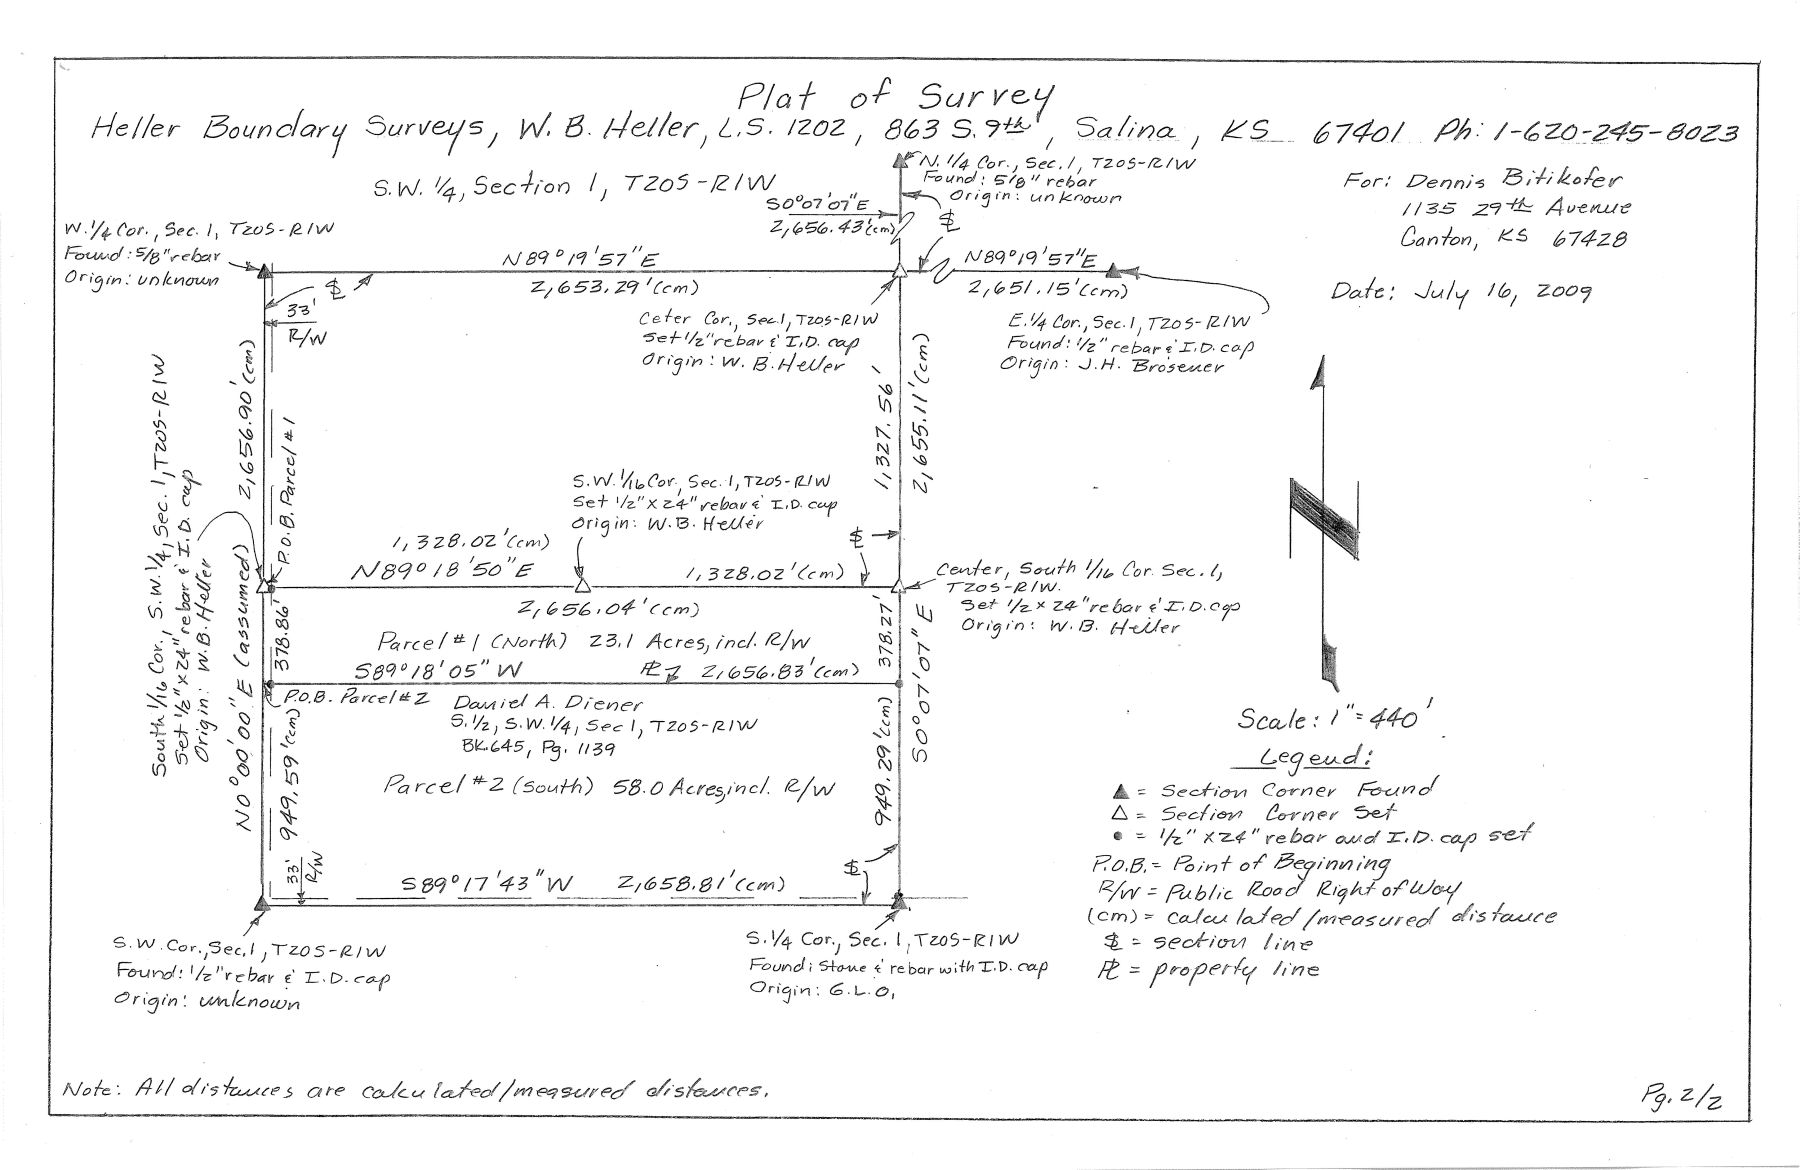 Plat of Survey
Heller Boundary Surveys, W. B. Heller, L.S. 1202, 863 S. 9th, Salina, KS 67401 Ph: 1-620-245-8023
S.W. 1/4, Section 1, T20S-R1W
N. 1/4 Cor., Sec. 1, T20S-R1W
Found: 5/8" rebar
Origin: unknown
For: Dennis Bitikofer
1135 29th Avenue
Canton, KS 67428
Date: July 16, 2009
S0°07'07"E
2,656.43'(cm)
W. 1/4 Cor., Sec. 1, T20S-R1W
Found: 5/8" rebar
Origin: unknown
N89°19'57"E
2,653.29'(cm)
N89°19'57"E
2,651.15'(cm)
33'
R/W
Ceter Cor., Sec. 1, T20S-R1W
Set 1/2" rebar & I.D. cap
Origin: W. B. Heller
E. 1/4 Cor., Sec. 1, T20S-R1W
Found: 1/2" rebar & I.D. cap
Origin: J.H. Broseuer
2,656.90'(cm)
N0°00'00"E (assumed)
P.O.B. Parcel #1
1,327.56'
2,655.11'(cm)
S0°07'07"E
South 1/16 Cor., S.W. 1/4, Sec. 1, T20S-R1W
Set 1/2" X 24" rebar & I.D. cap
Origin: W.B. Heller
S.W. 1/16 Cor., Sec. 1, T20S-R1W
Set 1/2" X 24" rebar & I.D. cap
Origin: W.B. Heller
1,328.02'(cm)
N89°18'50"E
1,328.02'(cm)
2,656.04'(cm)
Center, South 1/16 Cor. Sec. 1,
T20S-R1W.
Set 1/2 x 24" rebar & I.D. cap
Origin: W. B. Heller
378.86'
378.27'
Parcel #1 (North) 23.1 Acres, incl. R/W
S89°18'05"W PL 2,656.83'(cm)
P.O.B. Parcel #2
Daniel A. Diener
S. 1/2, S.W. 1/4, Sec 1, T20S-R1W
BK. 645, Pg. 1139
Parcel #2 (South) 58.0 Acres, incl. R/W
949.59'(cm)
949.29'(cm)
33'
R/W
S89°17'43"W 2,658.81'(cm)
S.W. Cor., Sec. 1, T20S-R1W
Found: 1/2" rebar & I.D. cap
Origin: unknown
S. 1/4 Cor., Sec. 1, T20S-R1W
Found: Stone & rebar with I.D. cap
Origin: G.L.O.
Scale: 1" = 440'
Legend:
▲ = Section Corner Found
△ = Section Corner Set
● = 1/2" X 24" rebar and I.D. cap set
P.O.B. = Point of Beginning
R/W = Public Road Right of Way
(cm) = calculated/measured distance
SL = section line
PL = property line
Note: All distances are calculated/measured distances.
Pg. 2/2